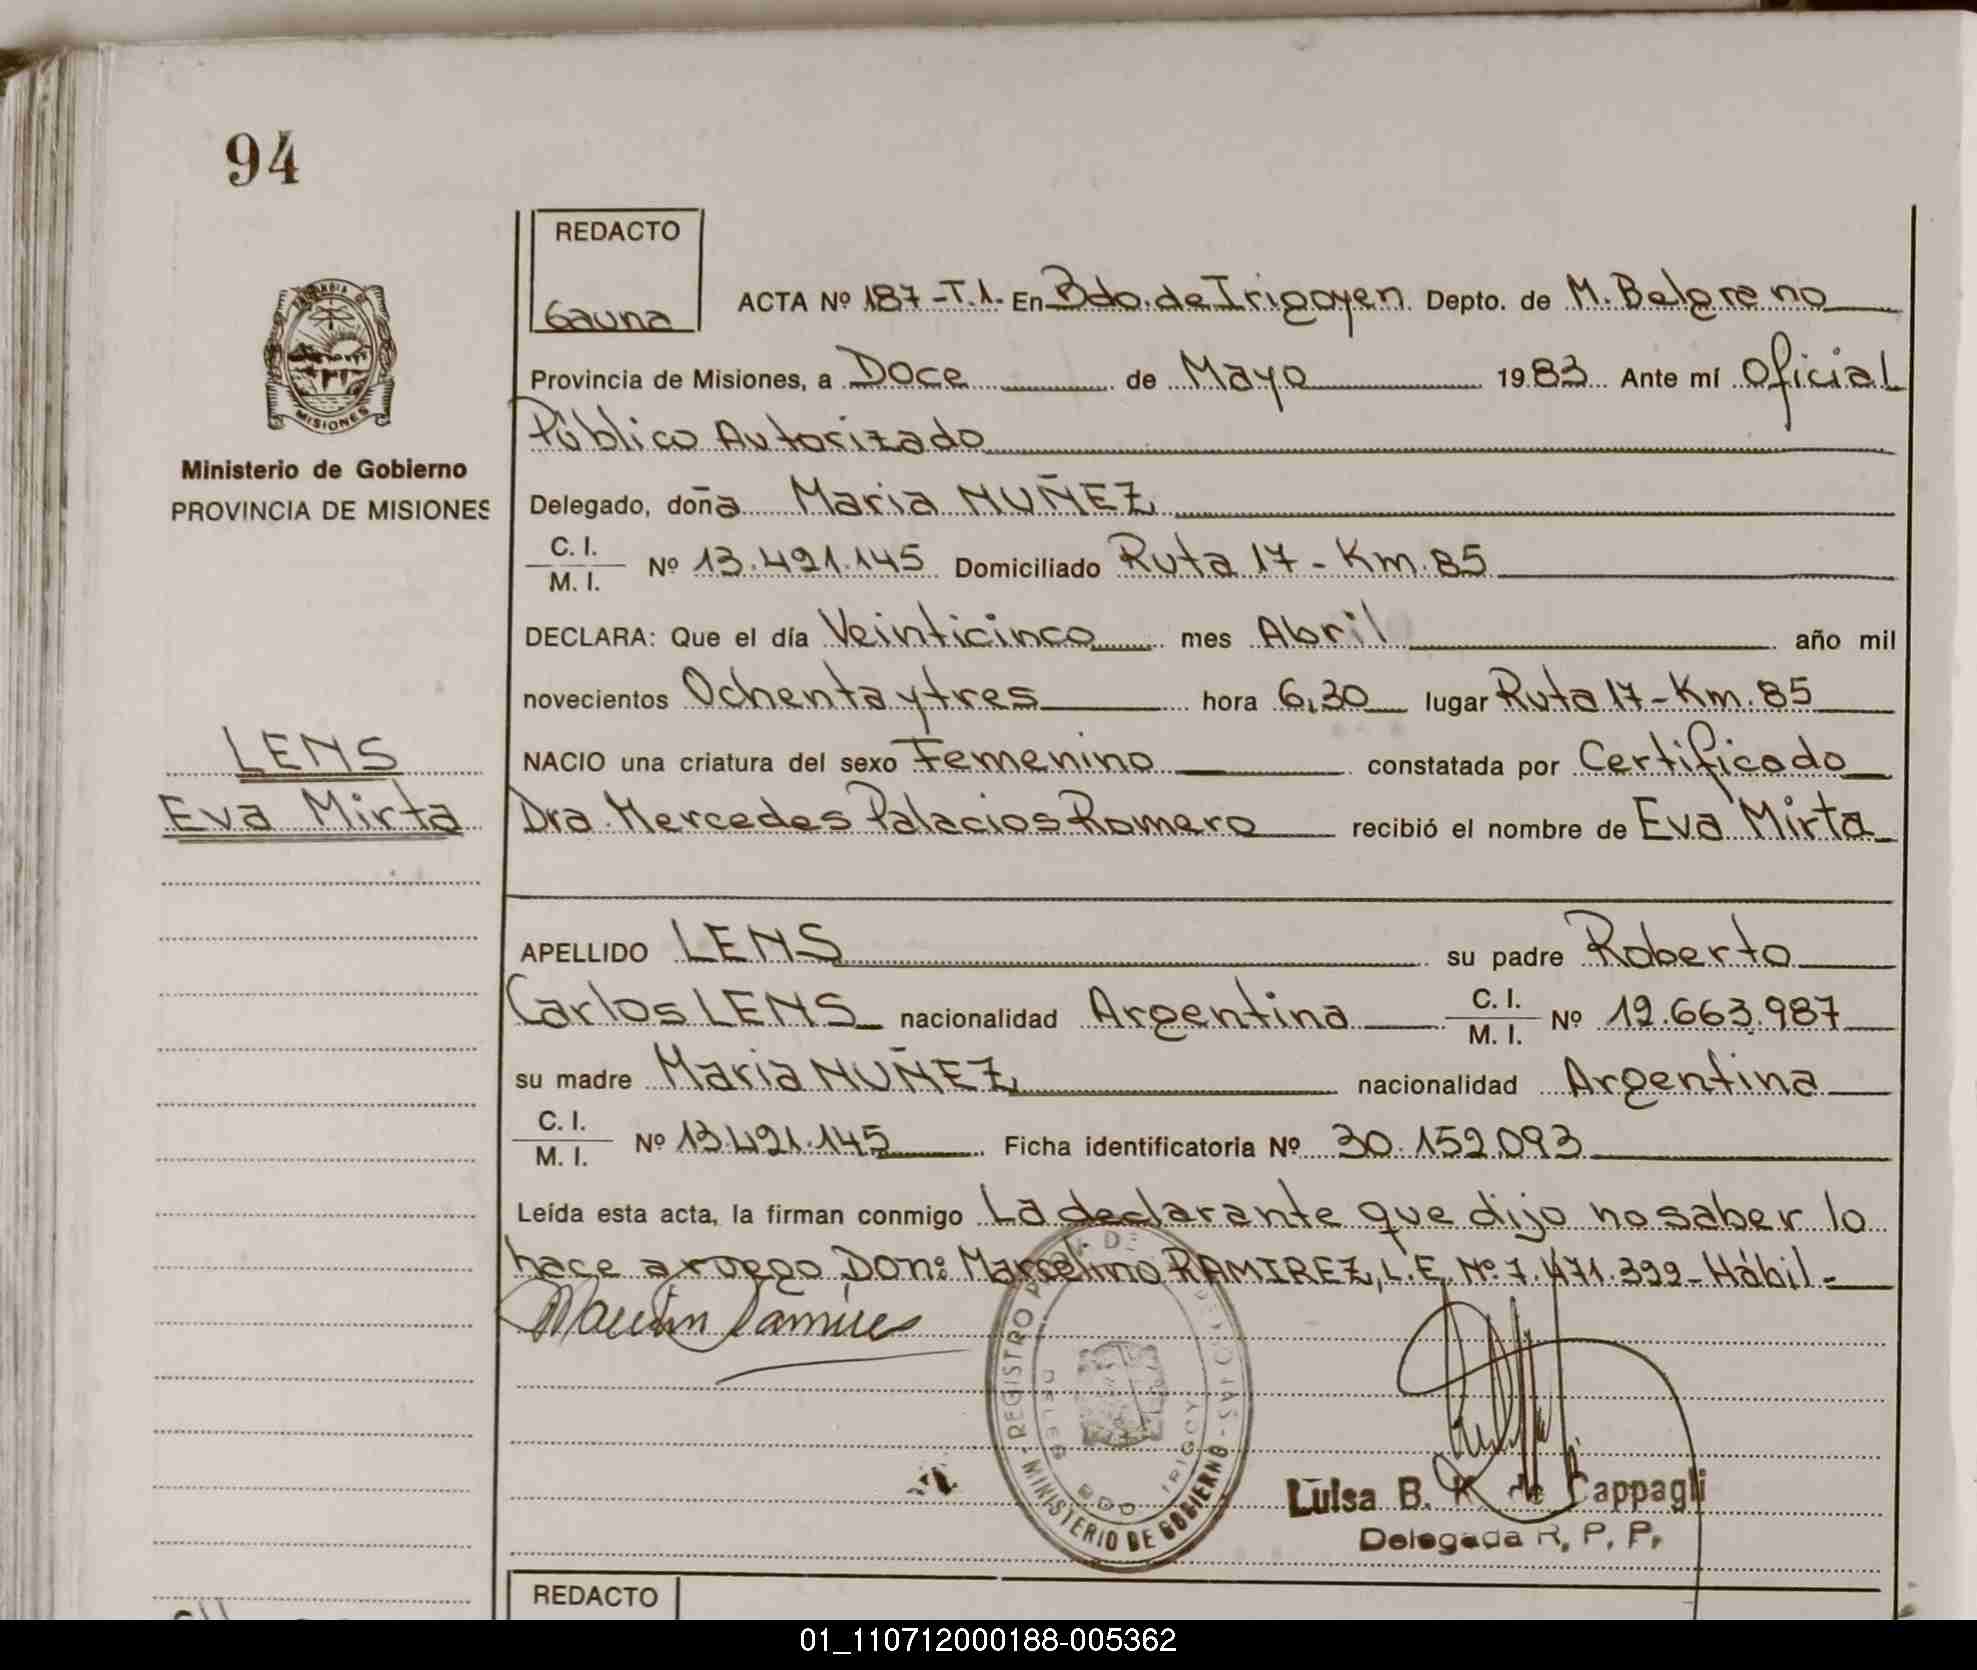 94
REDACTO
Gauna
ACTA Nº 187-T.1. En Bdo. de Irigoyen. Depto. de M. Belgrano
Provincia de Misiones, a Doce de Mayo 1983 Ante mí Oficial
Público Autorizado
Ministerio de Gobierno
PROVINCIA DE MISIONES
MISIONES
Delegado, doña Maria NUÑEZ
C. I.
M. I. Nº 13.421.145 Domiciliado Ruta 17 - Km. 85
DECLARA: Que el día Veinticinco mes Abril año mil
novecientos Ochenta y tres hora 6,30 lugar Ruta 17 - Km. 85
LENS
NACIO una criatura del sexo Femenino constatada por Certificado
Eva Mirta
Dra. Mercedes Palacios Romero recibió el nombre de Eva Mirta
APELLIDO LENS su padre Roberto
Carlos LENS nacionalidad Argentina C. I.
M. I. Nº 12.663.987
su madre Maria NUÑEZ nacionalidad Argentina
C. I.
M. I. Nº 13.421.145 Ficha identificatoria Nº 30.152.093
Leída esta acta, la firman conmigo La declarante que dijo no saber lo
hace a ruego Don: Marcelino RAMIREZ, L.E. Nº 7.471.399 - Hábil -
REGISTRO
MINISTERIO DE GOBIERNO
DELEG
BDO IRIGOY
Luisa B. K de Cappagli
Delegada R. P. P.
REDACTO
01_110712000188-005362